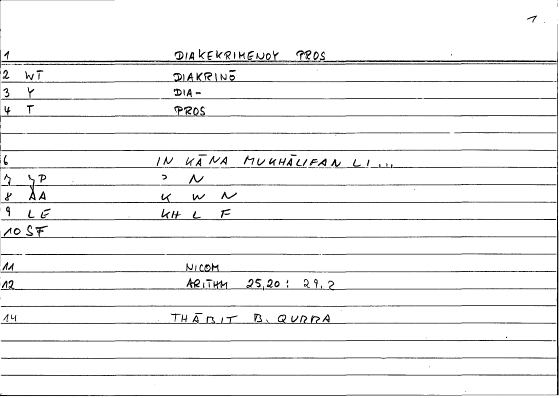 1
1 DIAKEKRIMENOY PROS
2 WT DIAKRINŌ
3 Y DIA-
4 T PROS
6 IN KĀNA MUKHĀLIFAN LI...
7 YP ʾ N
8 AA K W N
9 LE KH L F
10 SF
11 NICOM
12 ARITHM 25,20 : 29,2
14 THĀBIT B. QURRA